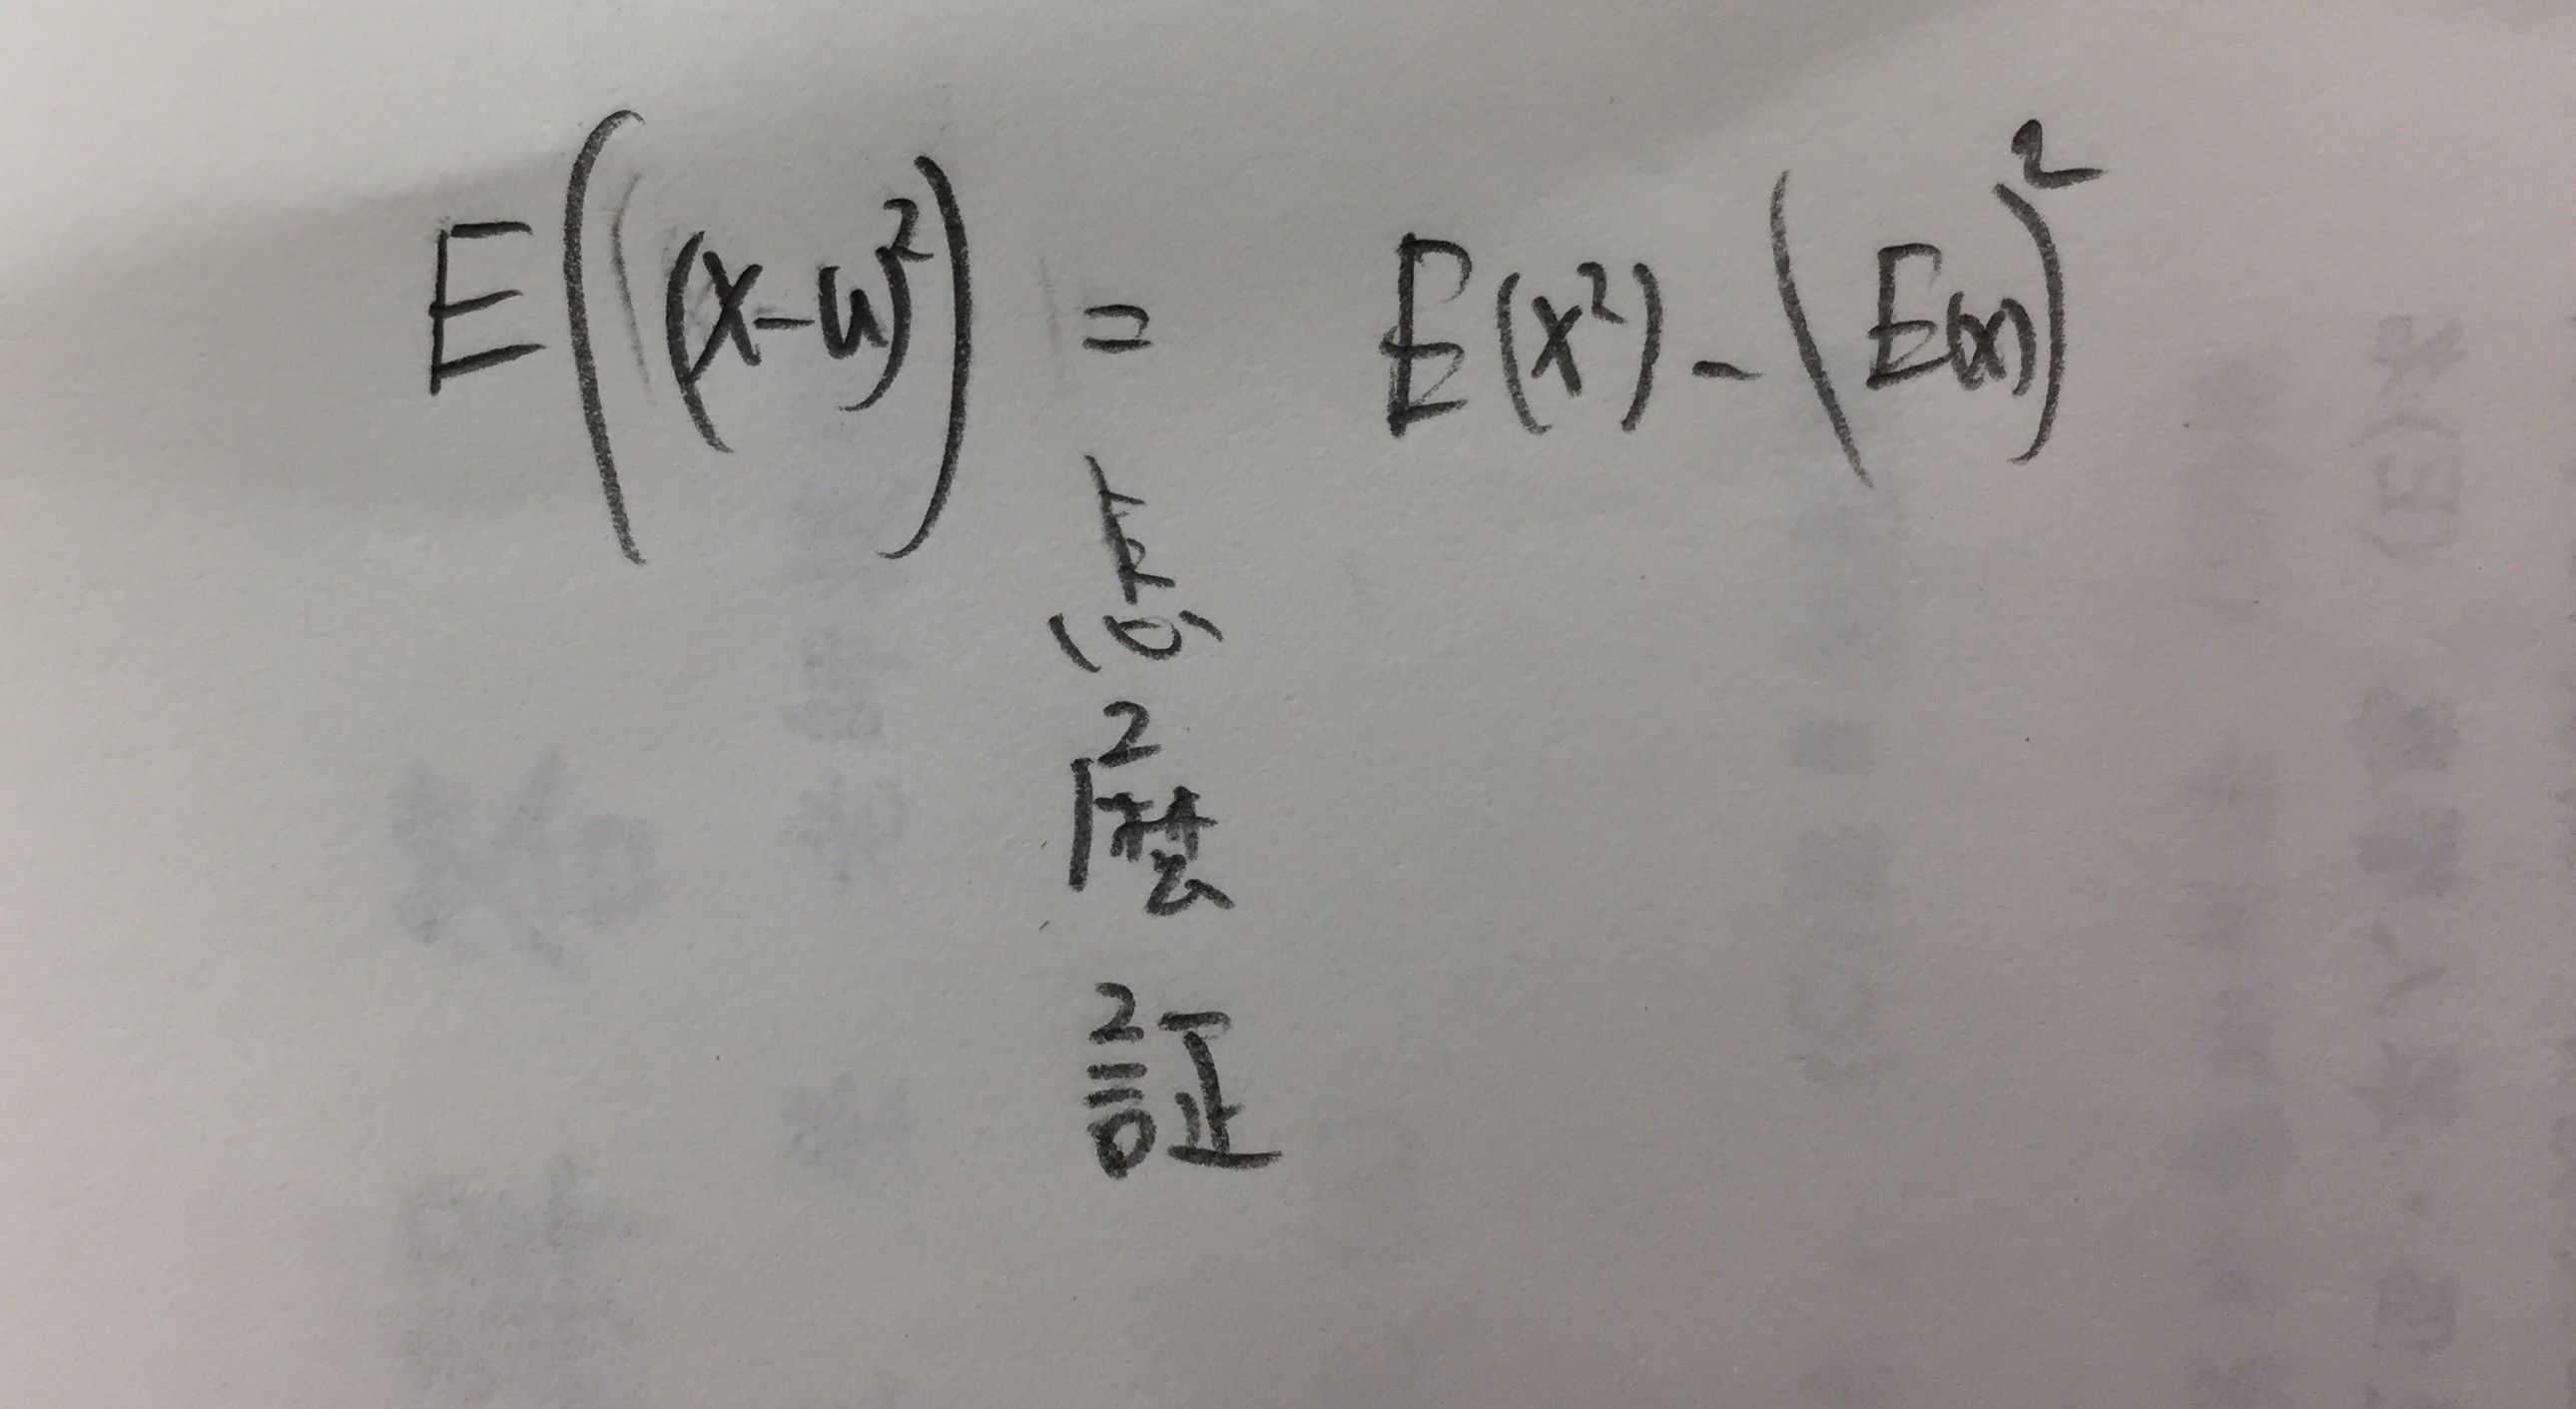 E((x-u)²) = E(x²) - (E(x))²
怎
麼
証